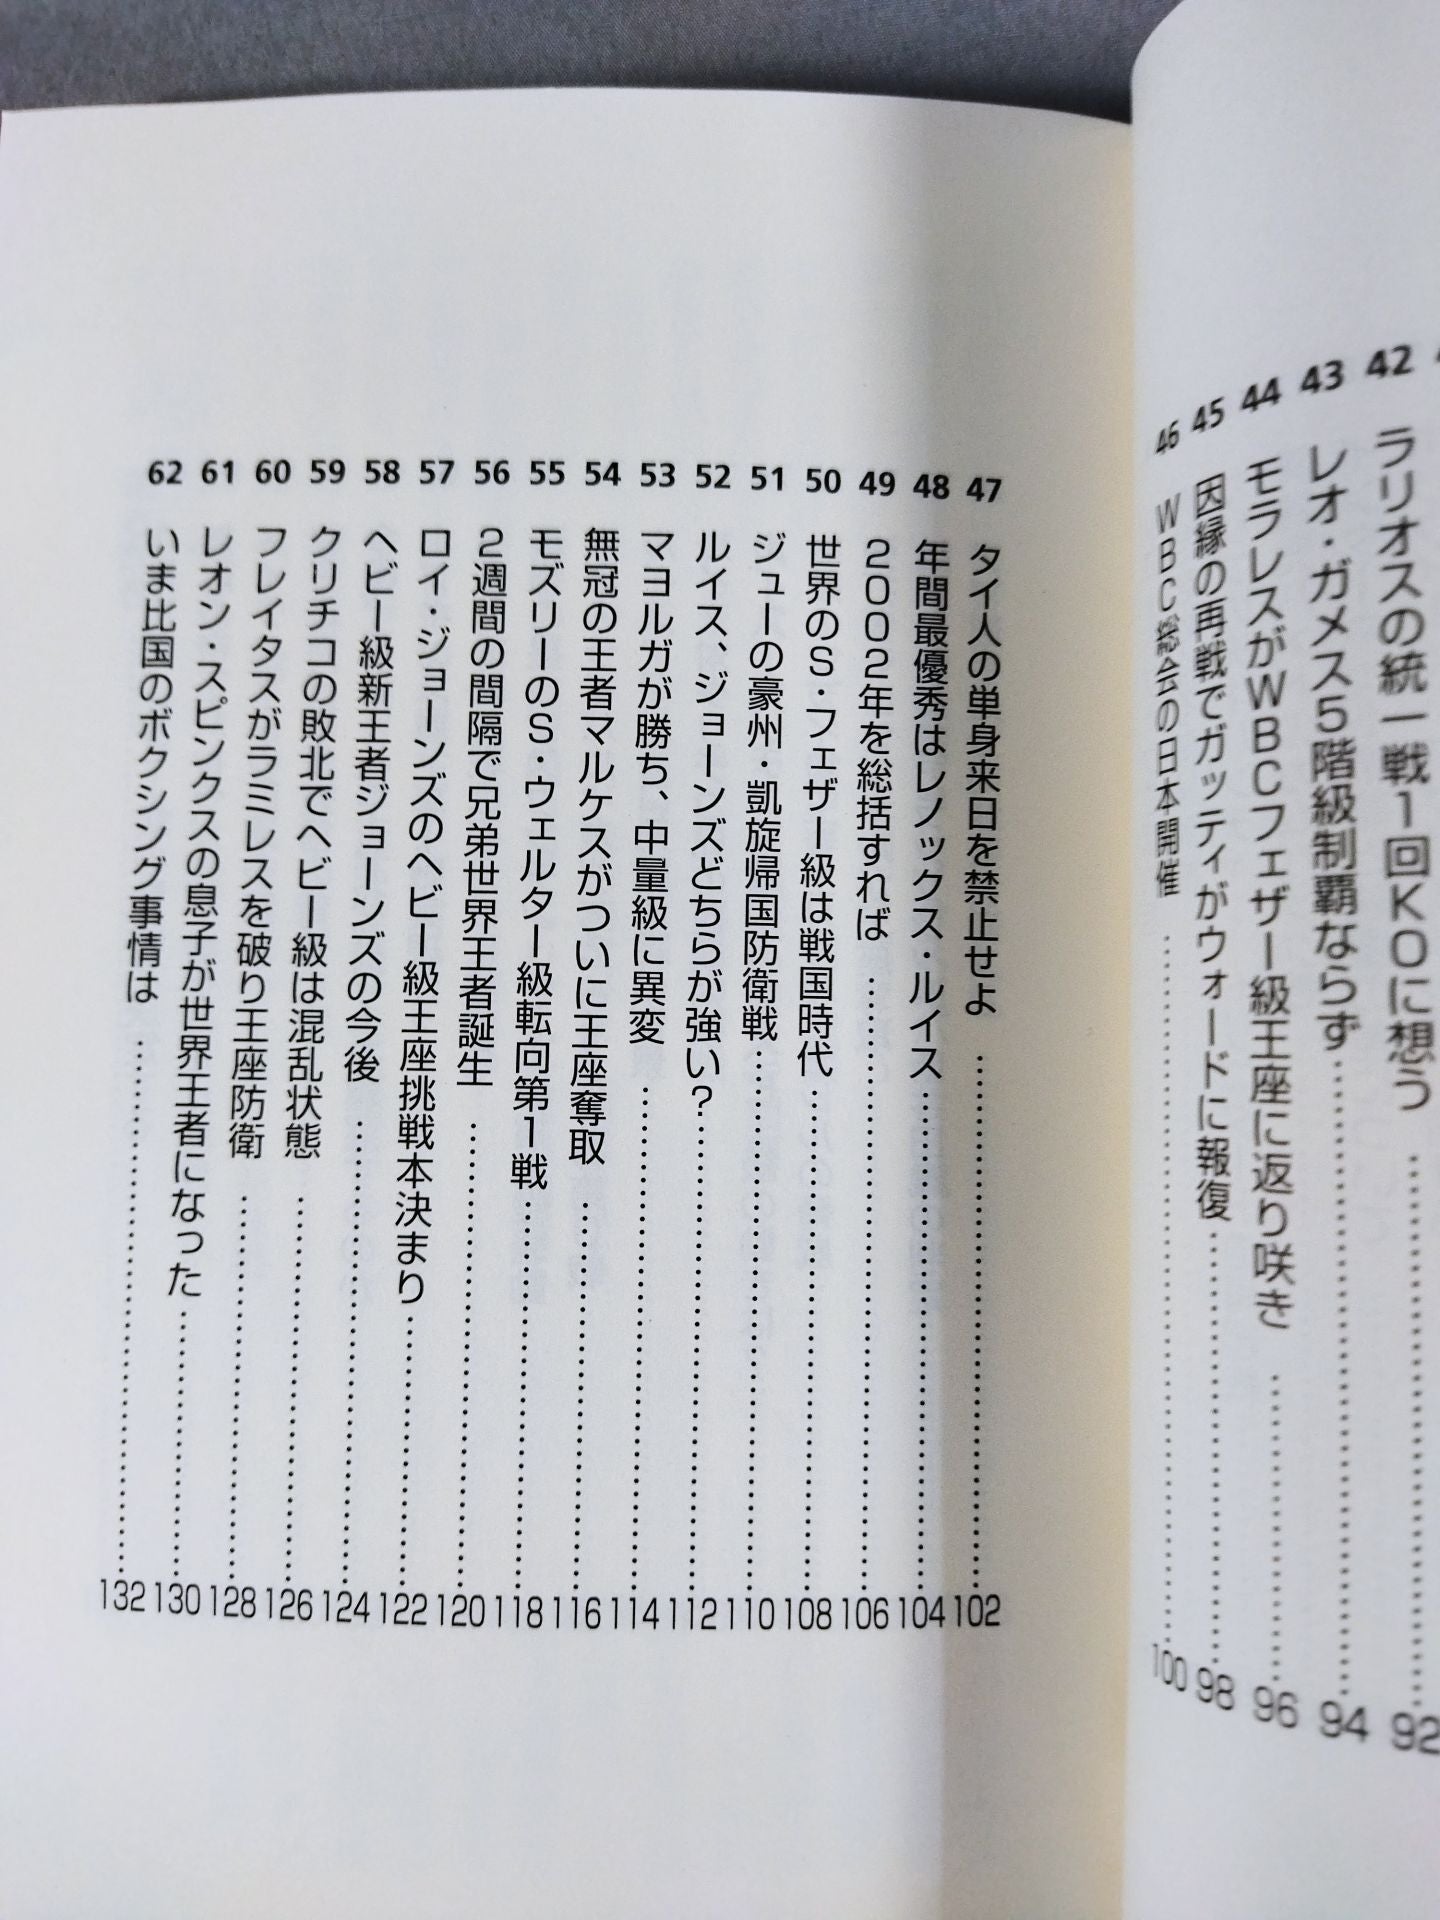 42 ラリオスの統一戦1回KOに想う 92
43 レオ・ガメス5階級制覇ならず 94
44 モラレスがWBCフェザー級王座に返り咲き 96
45 因縁の再戦でガッティがウォードに報復 98
46 WBC総会の日本開催 100
47 タイ人の単身来日を禁止せよ 102
48 年間最優秀はレノックス・ルイス 104
49 2002年を総括すれば 106
50 世界のS・フェザー級は戦国時代 108
51 ジューの豪州・凱旋帰国防衛戦 110
52 ルイス、ジョーンズどちらが強い? 112
53 マヨルガが勝ち、中量級に異変 114
54 無冠の王者マルケスがついに王座奪取 116
55 モズリーのS・ウェルター級転向第1戦 118
56 2週間の間隔で兄弟世界王者誕生 120
57 ロイ・ジョーンズのヘビー級王座挑戦本決まり 122
58 ヘビー級新王者ジョーンズの今後 124
59 クリチコの敗北でヘビー級は混乱状態 126
60 フレイタスがラミレスを破り王座防衛 128
61 レオン・スピンクスの息子が世界王者になった 130
62 いま比国のボクシング事情は 132